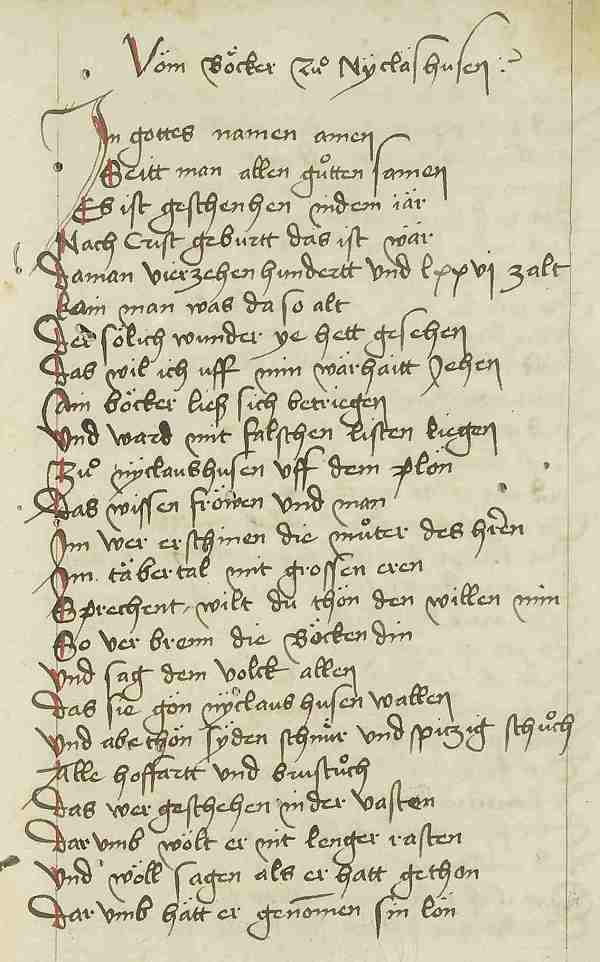 Vöm Böcker Zuͦ Nÿclashusen
In gottes namen amen
Seitt man allen guͦtten samen
Es ist geschenhen in dem iär
Nach Crist geburtt das ist wär
Da man vierzehen hundertt und lxxvi zalt
kain man was da so alt
Der sölich wunder ye hett gesehen
Das wil ich uff min wärhaitt Jehen
Ain böcker ließ sich betriegen
Und ward mit falschen listen liegen
Zuͦ nÿclaushusen uff dem plön
Das wissen fröwen und man
Im wer erschinen die muͦter des hren
Im täbertal mit grossen eren
Sprechent wilt du thön den willen min
So ver brenn die Böcken din
Und sag dem volck allen
das sie gön nÿclaus husen wallen
Und abe thön sÿden schnuͤr und spiczig schuͦch
Alle hoffartt und brustuͦch
Das wer geschehen in der vasten
Dar umb wölt er nit lenger rasten
Und wöll sagen als er hatt gethon
Dar umb hätt er genomen sin lön